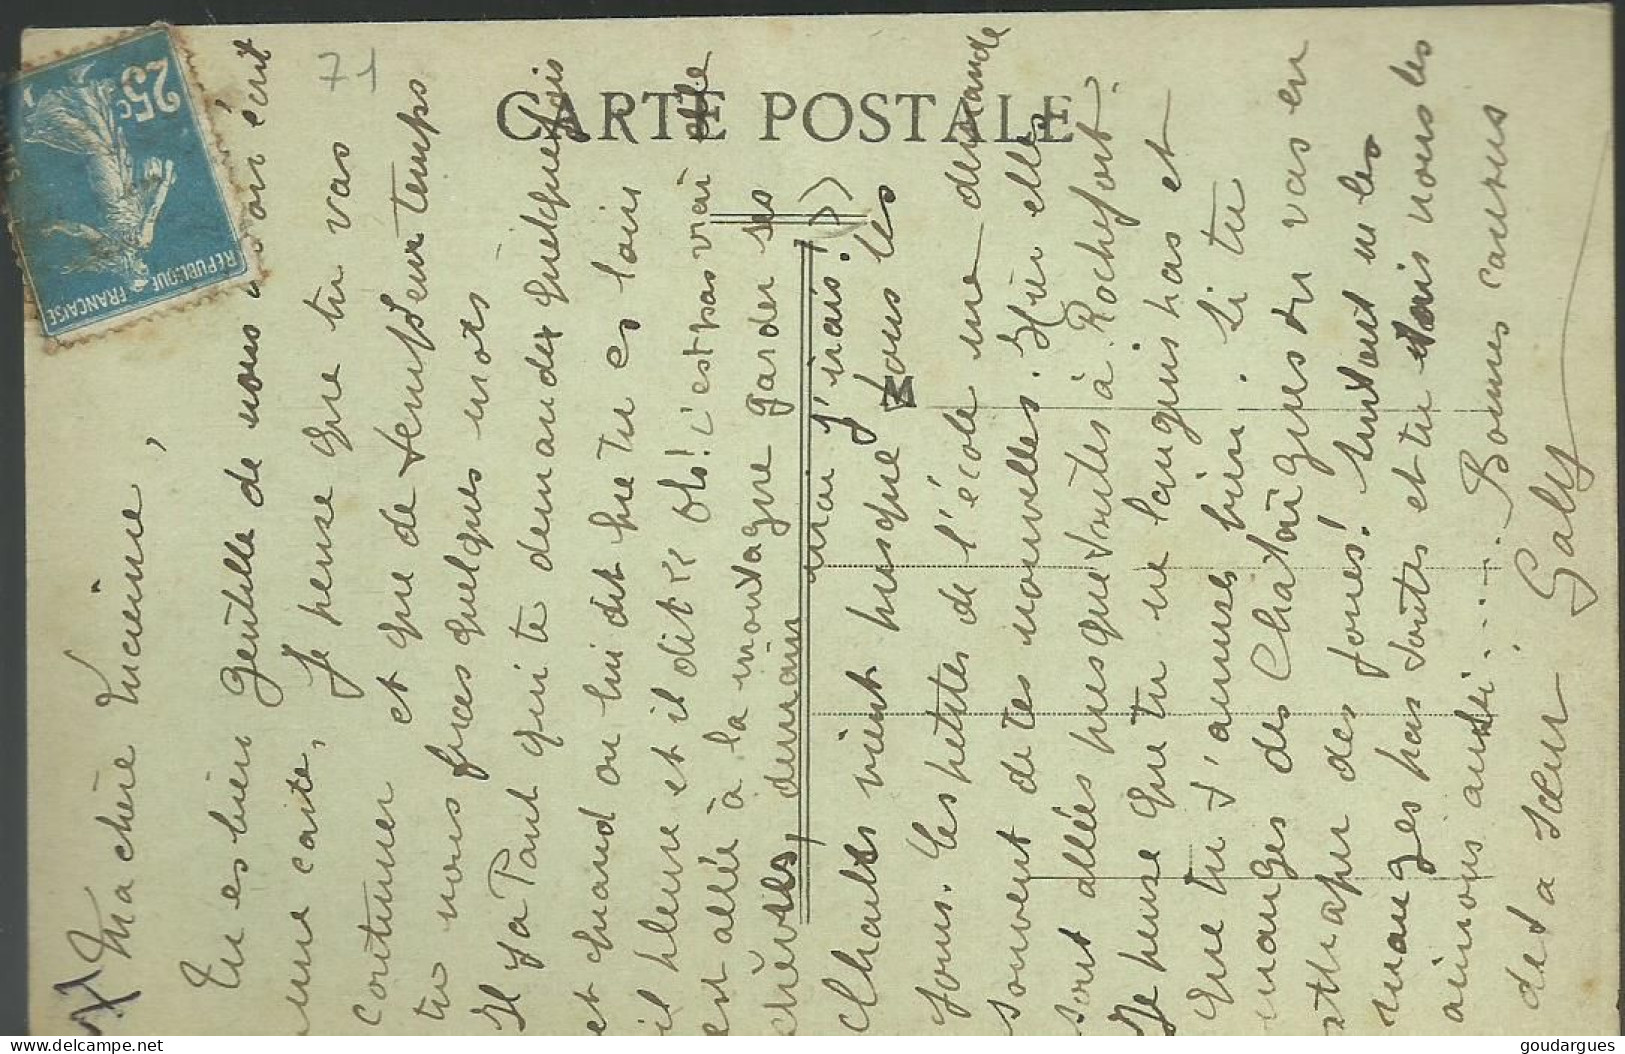 CARTE POSTALE
71
25c
REPUBLIQUE FRANCAISE
M
Ma chère Lucienne,
Tu es bien gentille de nous avoir écrit
une carte, Je pense que tu vas
continuer et que de temps en temps
tu nous feras quelques mots
Il y a Paul qui te demande quelquefois
et quand on lui dit que tu es loin
il pleure et il dit " Oh! c'est pas vrai elle
est allée à la montagne garder ses
chèvres, demain j'irais! "
Charles vient presque tous les
jours. Les petites de l'école me demande
souvent de tes nouvelles. Hier elles
sont allées presque toutes à Rochefort.
Je pense que tu ne languis pas et
que tu t'amuses bien. Si tu
manges des Chataîgnes tu vas en
attraper des joues! surtout ne les
manges pas toutes et tu nous les
aussi..... Bonnes caresses
de ta sœur
Galy
Delcampe.net
goudargues